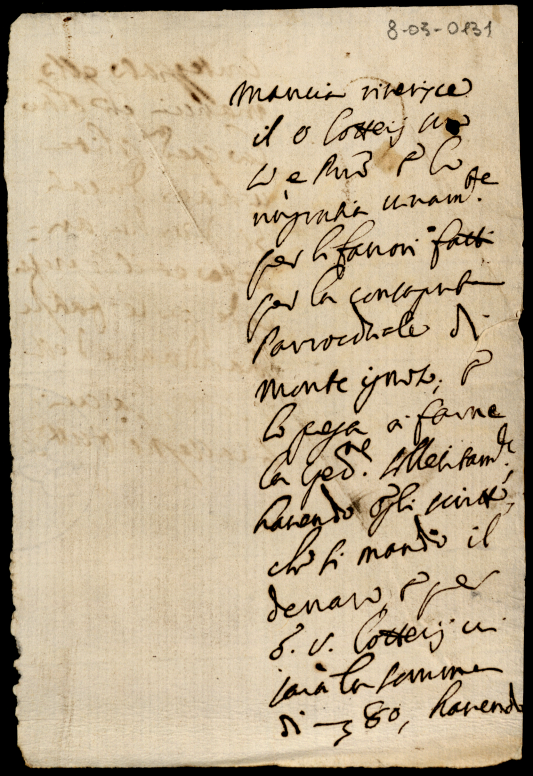 8-03-0131
Mancia riverisce
il S.r Cottei suo
e Pne e lo
ringratia unam.te
per li favori fatti
per la consaputa
Parrochiale di
Monte ignoso, e
lo prega a farne
la sped.ne sollecitam.te
havendo egli scritto,
che si mandò il
denaro, e per
S. V. Cottei vi
sarà la somma
di 80, havendo